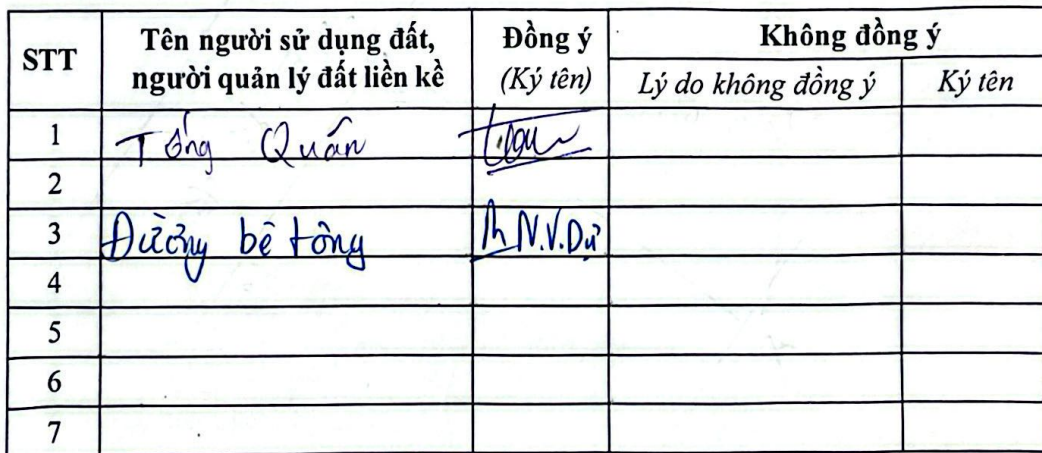 STT Tên người sử dụng đất, người quản lý đất liền kề Đồng ý (Ký tên) Không đồng ý
Lý do không đồng ý Ký tên
1 Tống Quán
2
3 Đường bê tông N.V.Dự
4
5
6
7